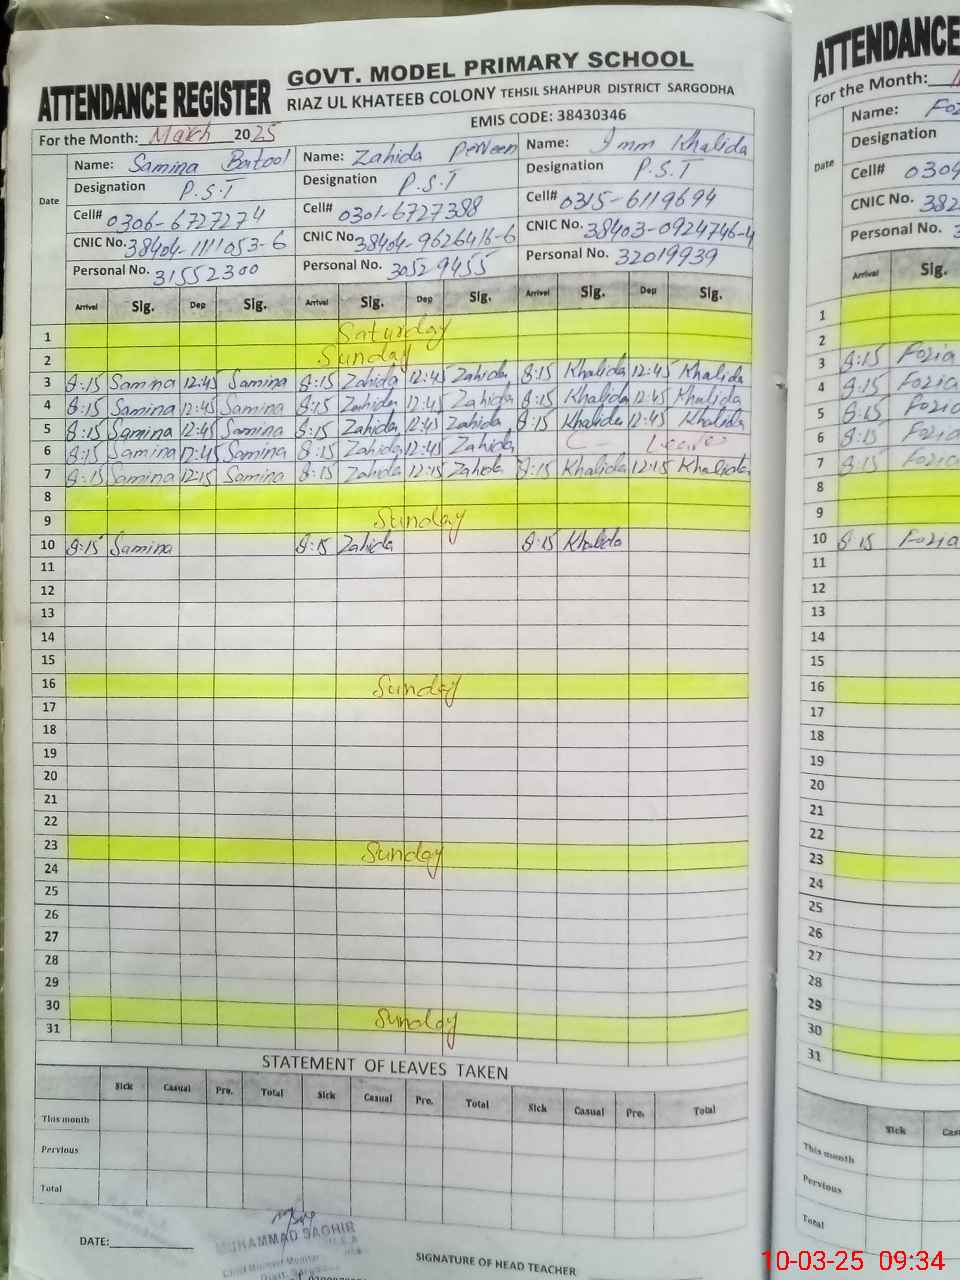 GOVT. MODEL PRIMARY SCHOOL
ATTENDANCE REGISTER RIAZ UL KHATEEB COLONY TEHSIL SHAHPUR DISTRICT SARGODHA
For the Month: March 2025 EMIS CODE: 38430346
Date Name: Samina Batool Name: Zahida Perveen Name: Imm Khalida
Designation P.S.T Designation P.S.T Designation P.S.T
Cell# 0306-6727274 Cell# 0301-6727388 Cell# 0315-6119694
CNIC No. 38404-1111053-6 CNIC No. 38404-9626416-6 CNIC No. 38403-0924746-4
Personal No. 31552300 Personal No. 30529455 Personal No. 32019939
Arrival Sig. Dep Sig. Arrival Sig. Dep Sig. Arrival Sig. Dep Sig.
1 Saturday
2 Sunday
3 8:15 Samina 12:45 Samina 8:15 Zahida 12:45 Zahida 8:15 Khalida 12:45 Khalida
4 8:15 Samina 12:45 Samina 8:15 Zahida 12:45 Zahida 8:15 Khalida 12:45 Khalida
5 8:15 Samina 12:45 Samina 8:15 Zahida 12:45 Zahida 8:15 Khalida 12:45 Khalida
6 8:15 Samina 12:45 Samina 8:15 Zahida 12:45 Zahida C - Leave
7 8:15 Samina 12:15 Samina 8:15 Zahida 12:15 Zahida 8:15 Khalida 12:15 Khalida
8
9 Sunday
10 8:15 Samina 8:15 Zahida 8:15 Khalida
11
12
13
14
15
16 Sunday
17
18
19
20
21
22
23 Sunday
24
25
26
27
28
29
30 Sunday
31
STATEMENT OF LEAVES TAKEN
Sick Casual Pre. Total Sick Casual Pre. Total Sick Casual Pre. Total
This month
Pervious
Total
MUHAMMAD SAGHIR
DATE:
SIGNATURE OF HEAD TEACHER
ATTENDANCE
For the Month:
Date Name:
Designation
Cell# 0304
CNIC No. 382
Personal No. 3
Arrival Sig.
1
2
3 8:15 Fozia
4 8:15 Fozia
5 8:15 Fozia
6 8:15 Fozia
7 8:15 Fozia
8
9
10 8:15 Fozia
11
12
13
14
15
16
17
18
19
20
21
22
23
24
25
26
27
28
29
30
31
Sick
This month
Pervious
Total
10-03-25 09:34